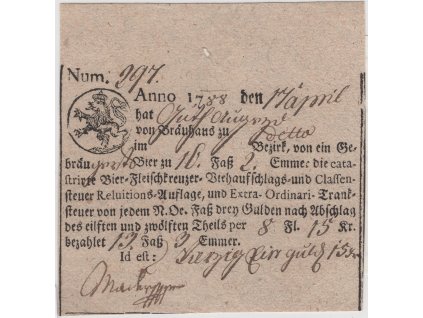 Num. 297.
Anno 1788 den 17 April
hat
von Bräuhaus zu detto
im Bezirk, von ein Ge-
bräu Bier zu 16. Faß 2. Emmer die cata-
strirte Bier-Fleischkreuzer-Viehaufschlags-und Classen-
steuer Reluitions-Auflage, und Extra-Ordinari-Trank-
steuer von jedem N. Oe. Faß drey Gulden nach Abschlag
des eilften und zwölften Theils per 8 Fl. 15 Kr.
bezahlet 13. Faß 3 Emmer.
Id est: Vierzig Ein guld 15